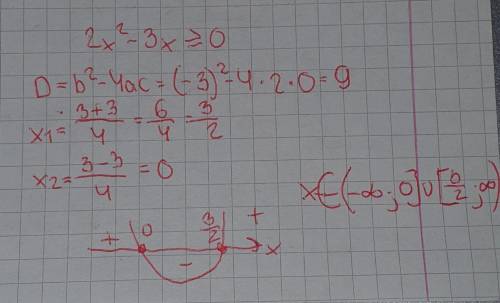 2x² - 3x ≥ 0
D = b² - 4ac = (-3)² - 4 · 2 · 0 = 9
x₁ = (3+3)/4 = 6/4 = 3/2
x₂ = (3-3)/4 = 0
x ∈ (-∞; 0] ∪ [0/2; ∞)
+ 0 - 3/2 + x